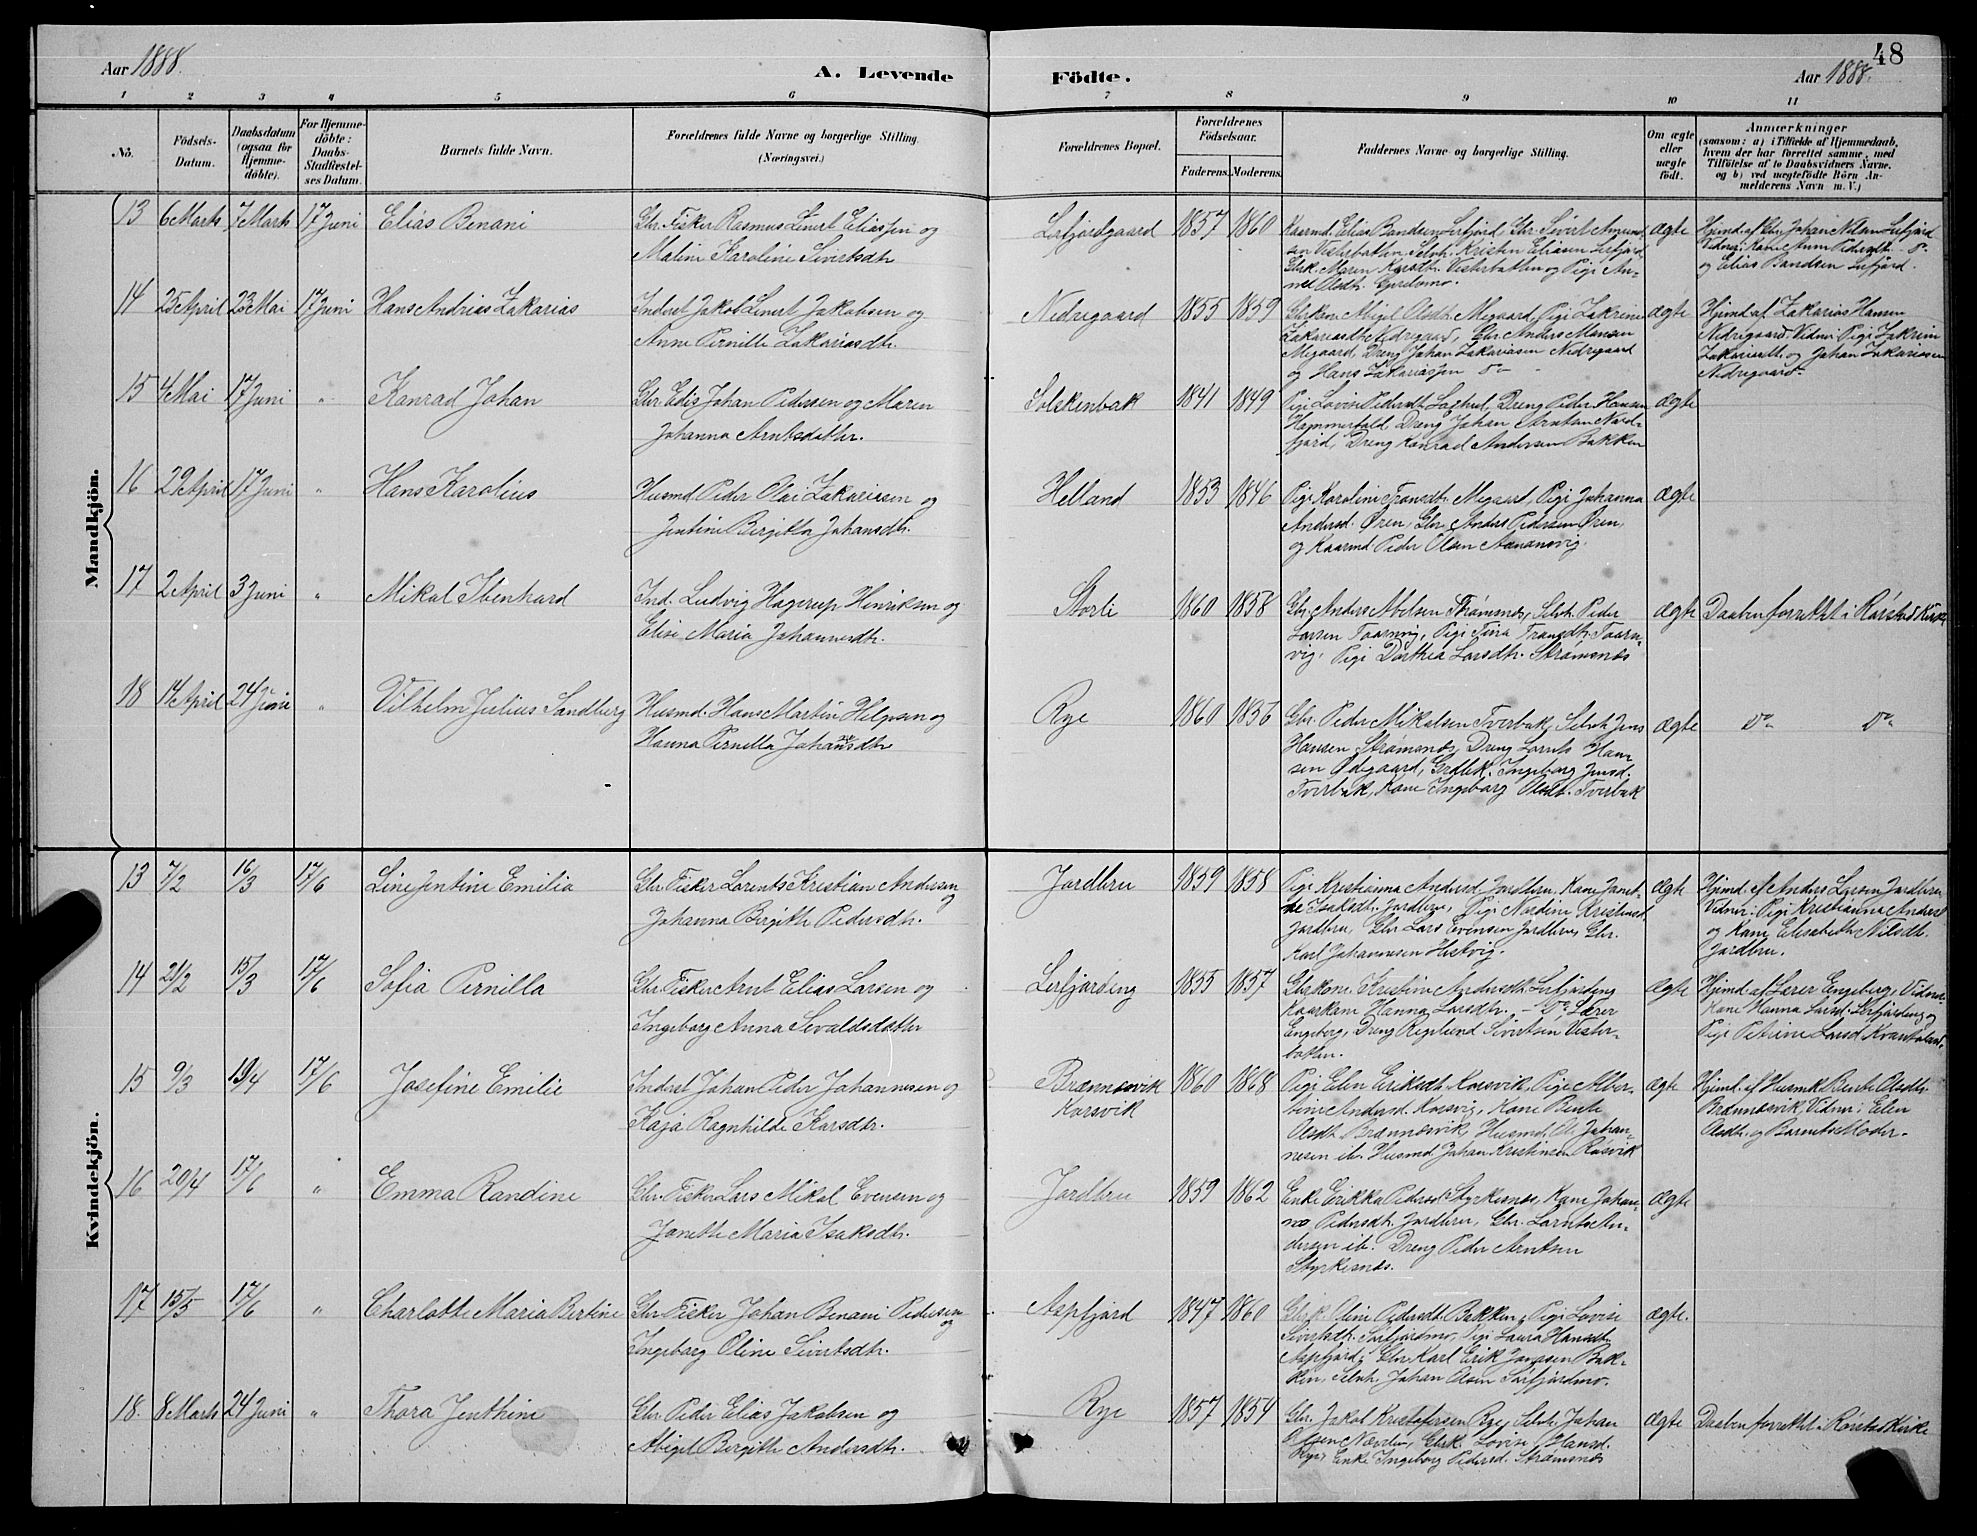 48
Aar 1888.
A. Levende
Födte.
Aar 1888.
1 2 3 4 5 6 7 8 9 10 11
No.
Födsels-
Datum.
Daabsdatum
(ogsaa for
Hjemme-
döbte).
For Hjemme-
döbte:
Daabs-
Stadfæstel-
ses Datum.
Barnets fulde Navn.
Forældrenes fulde Navne og borgerlige Stilling.
(Næringsvei.)
Forældrenes Bopæl.
Forældrenes
Födselsaar.
Faderens. Moderens.
Faddernes Navne og borgerlige Stilling.
Om ægte
eller
uægte
födt.
Anmærkninger
(saasom: a) i Tilfælde af Hjemmedaab,
hvem der har forrettet samme, med
Tilföielse af to Daabsvidners Navne,
og b) ved uægtefödte Börn An-
melderens Navn m. V.)
Mandkjön.
13 6 Marts 7 Marts 17 Juni Elias Benani
Gbr. Fisker Rasmus Linert Eliassen og
Maline Karoline Sivertsdtr
Leifjordgaard 1857 1860
Kaarmd. Elias Bendsen Leifjord, Gbr. Sivert Amund-
sen Vesterbotten, Selvh. Kristen Eliasen Leifjord
Gbrk. Maren Vesterbotten og Pige An-
ne Olsdtr.
ægte
Hjmd. af Johan Nilsen Leifjord
Vidner: Kone Anne Pedersdtr. do
og Elias Bendsen Leifjord.
14 25 April 23 Mai 17 Juni Hans Andreas Zakarias
Inderst Jakob Linert Jakobsen og
Anne Pernille Zakariasdtr.
Nedregaard 1855 1859
Gbrkone Abigel Olsdtr. Megaard, Pige Zakrine
Zakariasdtr. Nedregaard, Gbr. Anders Monsen
Megaard, Dreng Johan Zakariasen Nedregaard
og Hans Zakariassen do
ægte
Hjemd. af Zakarias Hansen
Nedregaard. Vidner: Pige Zakrine
Zakariasdtr. og Johan Zakariassen
Nedregaard.
15 4 Mai 17 Juni " Konrad Johan
Gbr. Edis Johan Pedersen og Maren
Johanna Arntsdatter.
Solskenbak 1841 1849
Pige Lovise Pedersdtr. Dreng Peder Hansen
Dreng Johan Arntsen Nord-
fjord, Dreng Konrad Andersen Bakken
ægte
16 29 April 17 Juni " Hans Karolius
Husmd. Peder Olai Zakariasen og
Jentine Birgitta Johansdtr.
Helland 1853 1846
Pige Karoline Megaard, Pige Johanna
Andersd. Øren, Gbr. Anders Pedersen Øren,
og Kaarmd Peder Olsen
ægte
17 2 April 3 Juni " Mikal Ibenhard
Ind. Ludvig Hagerup Henriksen og
Elise Maria Johannesdtr.
Storli 1860 1858
Gbr. Anders Abelsen Strømsnes, Selvh. Peder
Larsen Taarnvig, Pige Tina Taarn-
vig, Pige Dorthea Larsdtr. Strømsnæs
ægte
Daaben forrettet i Rørstad Kirke
18 14 April 24 Juni " Vilhelm Julius Sandberg
Husmd. Hans Martin Helgesen og
Hanna Pernilla Johannesdtr
Rye 1860 1856
Gbr. Peder Mikalsen Tverbak, Selvh. Jens
Hansen Strømsnæs, Dreng Lornts Han-
sen Ødegaard, Grdbk. Ingeborg Jensd.
Tverbak, Kone Ingeborg Olsdt. Tverbak
ægte
do do
Kvindekjön.
13 7/2 16/3 17/6 Line Jentine Emilia
Gbr. Fisker Lorents Kristian Andersen
og
Johanna Birgitte Pedersdtr.
Jordbru 1859 1858
Pige Kristianna Andersd. Jordbru, Kone Janet-
te Isaksdtr. Jordbru, Pige Nordine Kristensd.
Jordbru, Gbr. Lars Evensen Jordbru, Gbr.
Karl Johannesen
ægte
Hjemd. af Anders Larsen Jordbru,
Vidner: Pige Kristianna Andersd.
og Kone Elisabeth Nilsdtr.
Jordbru.
14 2/2 15/3 17/6 Sofia Pernilla
Gbr. Fisker Arnt Elias Larsen og
Ingeborg Anna Sivaldsdatter
Leifjordeng 1855 1857
Gbrkone Kristine Andersdtr. Leifjordeng
Kaarkone Hanna Larsdtr. - do, Lærer
Engeberg, Dreng Sivertsen Vester-
botten.
ægte
Hjemd. af Lærer Engeberg, Vidner
Kone Hanna Larsd. Leifjordeng og
Pige Petrine Larsd.
15 9/3 19/4 17/6 Josefine Emilie
Inderst Johan Peder Johannesen og
Kaja Ragnhilde Larsdtr.
Brænnesvik
Korsvik
1860 1868
Pige Elen Eriksdtr. Korsvik, Pige Alber-
tine Andersd. Korsvig, Kone Bente
Olsdt. Brænnesvik, Husmd. Ole Johan-
nesen ib. Husmd Johan Kristensen Røsvik
ægte
Hjemd. af Husmk Bente Olsdtr.
Brænnesvik, Vidner: Elen
Olsdtr. og Barnets Moder.
16 20/4 17/6 " Emma Randine
Gbr. Fisker Lars Mikal Evensen og
Janette Maria Isaksdtr.
Jordbru 1859 1862
Enke Erikka Pedersd. Styrkesnæs, Kone Johan-
na Pedersdtr. Jordbru, Gbr. Lornts An-
dersen ib. Dreng Peder Arntsen
Styrkesnæs.
ægte
17 15/5 17/6 " Charlotte Maria Bertine
Gbr. Fisker Johan Benoni Pedersen
og
Ingeborg Oline Sivertsdtr.
Aspfjord 1847 1860
Gbrk. Oline Pedersdtr. Bakken, Pige Lovise
Sivertsdtr. Leifjordmo, Pige Laura Hansdtr.
Aspfjord, Gbr. Karl Erik Jonssen Bak-
ken, Selvh. Johan Olsen Leifjordmo.
ægte.
18. 8 Marts 24 Juni " Thora Jenthine
Gbr. Peder Elias Jakobsen og
Abigel Birgitte Andersdtr.
Rye 1857 1854
Gbr. Jakob Kristofersen Rye, Selvh. Johan
Olssen Gbrk. Lovise Hansd.
Rye, Enke Ingeborg Pedersd. Strømsnæs
ægte
Daaben forrettet i Rørstad Kirke